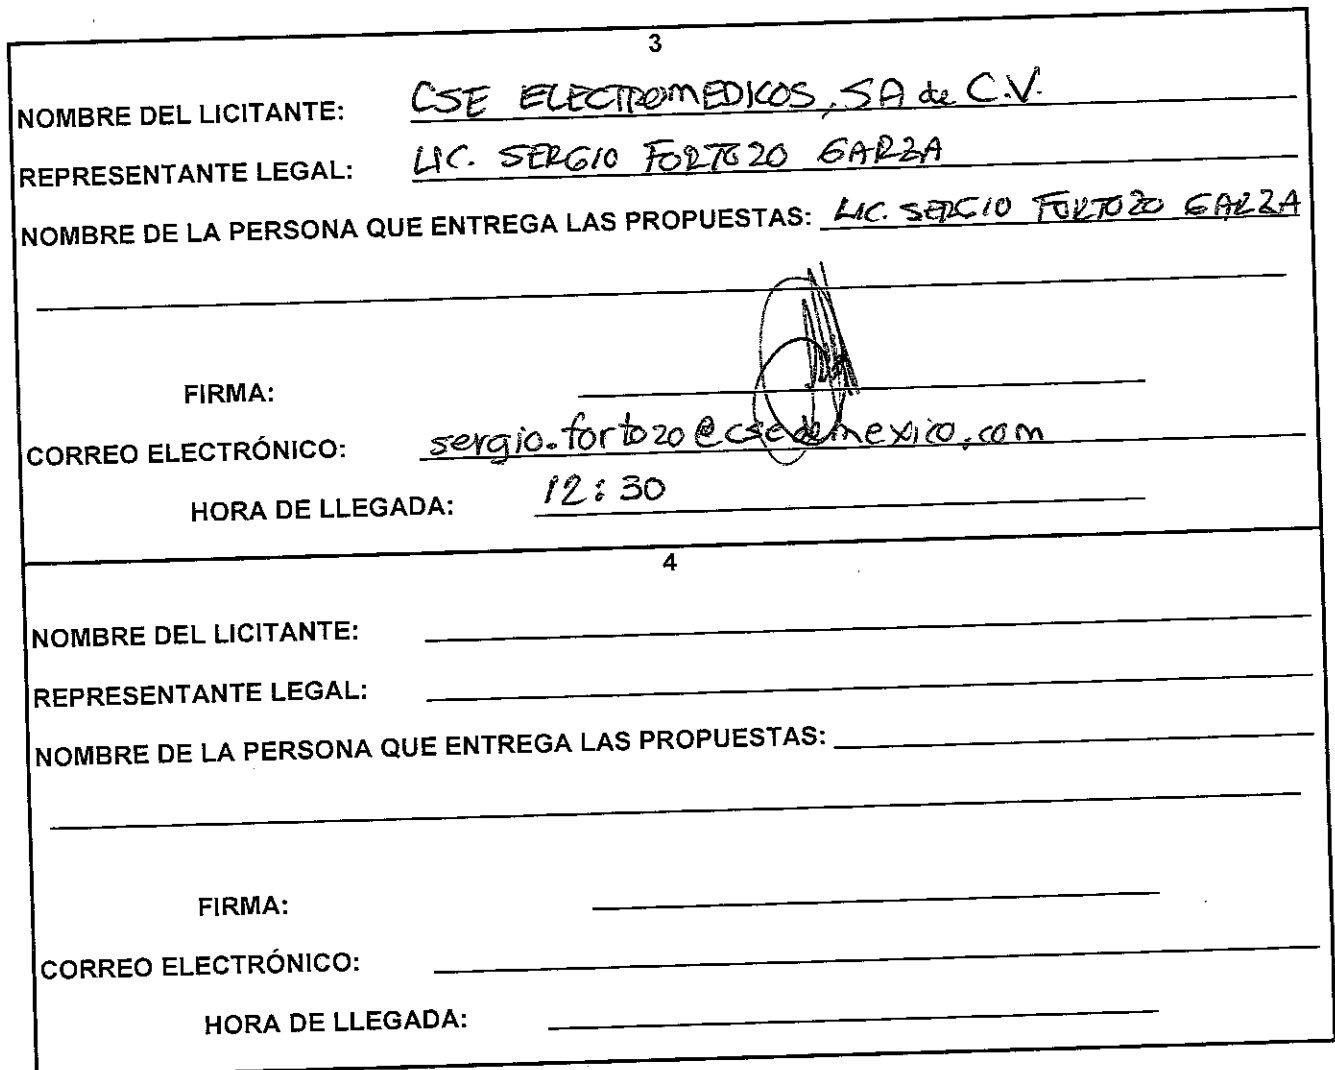 3
NOMBRE DEL LICITANTE: CSE ELECTROMEDICOS, SA de C.V.
REPRESENTANTE LEGAL: LIC. SERGIO FORTOZO GARZA
NOMBRE DE LA PERSONA QUE ENTREGA LAS PROPUESTAS: LIC. SERGIO FORTOZO GARZA
FIRMA:
CORREO ELECTRÓNICO: sergio.fortozo@csedemexico.com
HORA DE LLEGADA: 12:30
4
NOMBRE DEL LICITANTE:
REPRESENTANTE LEGAL:
NOMBRE DE LA PERSONA QUE ENTREGA LAS PROPUESTAS:
FIRMA:
CORREO ELECTRÓNICO:
HORA DE LLEGADA: